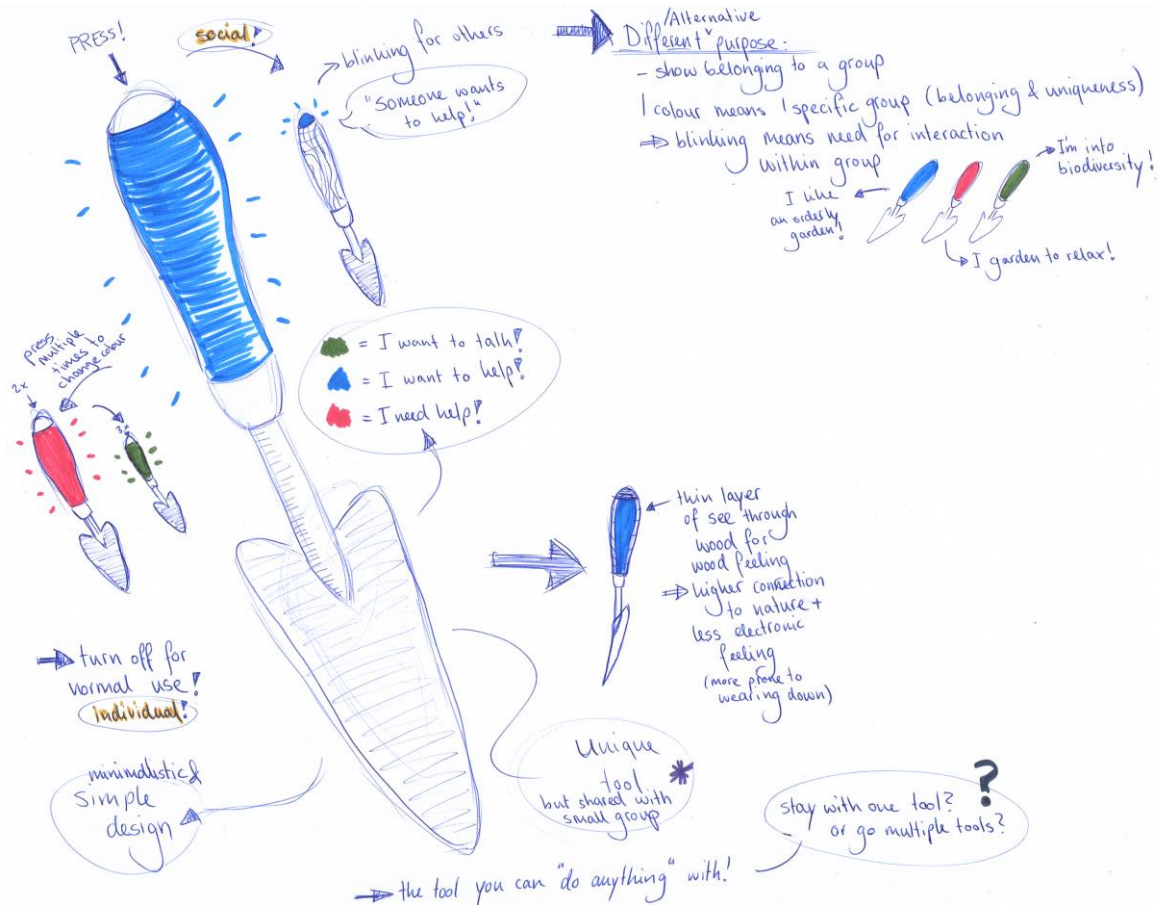 PRESS!
social!
blinking for others
"Someone wants
to help!"
/Alternative
Different purpose:
- show belonging to a group
1 colour means 1 specific group (belonging & uniqueness)
⇒ blinking means need for interaction
within group
I like
an orderly
garden!
I'm into
biodiversity!
I garden to relax!
press
multiple
times to
change colour
2x
3x
= I want to talk!
= I want to help!
= I need help!
thin layer
of see through
wood for
wood feeling
⇒ higher connection
to nature +
less electronic
feeling
(more prone to
wearing down)
turn off for
normal use!
individual!
minimalistic &
simple
design
Unique
tool *
but shared with
small group
stay with one tool?
or go multiple tools?
?
the tool you can "do anything" with!